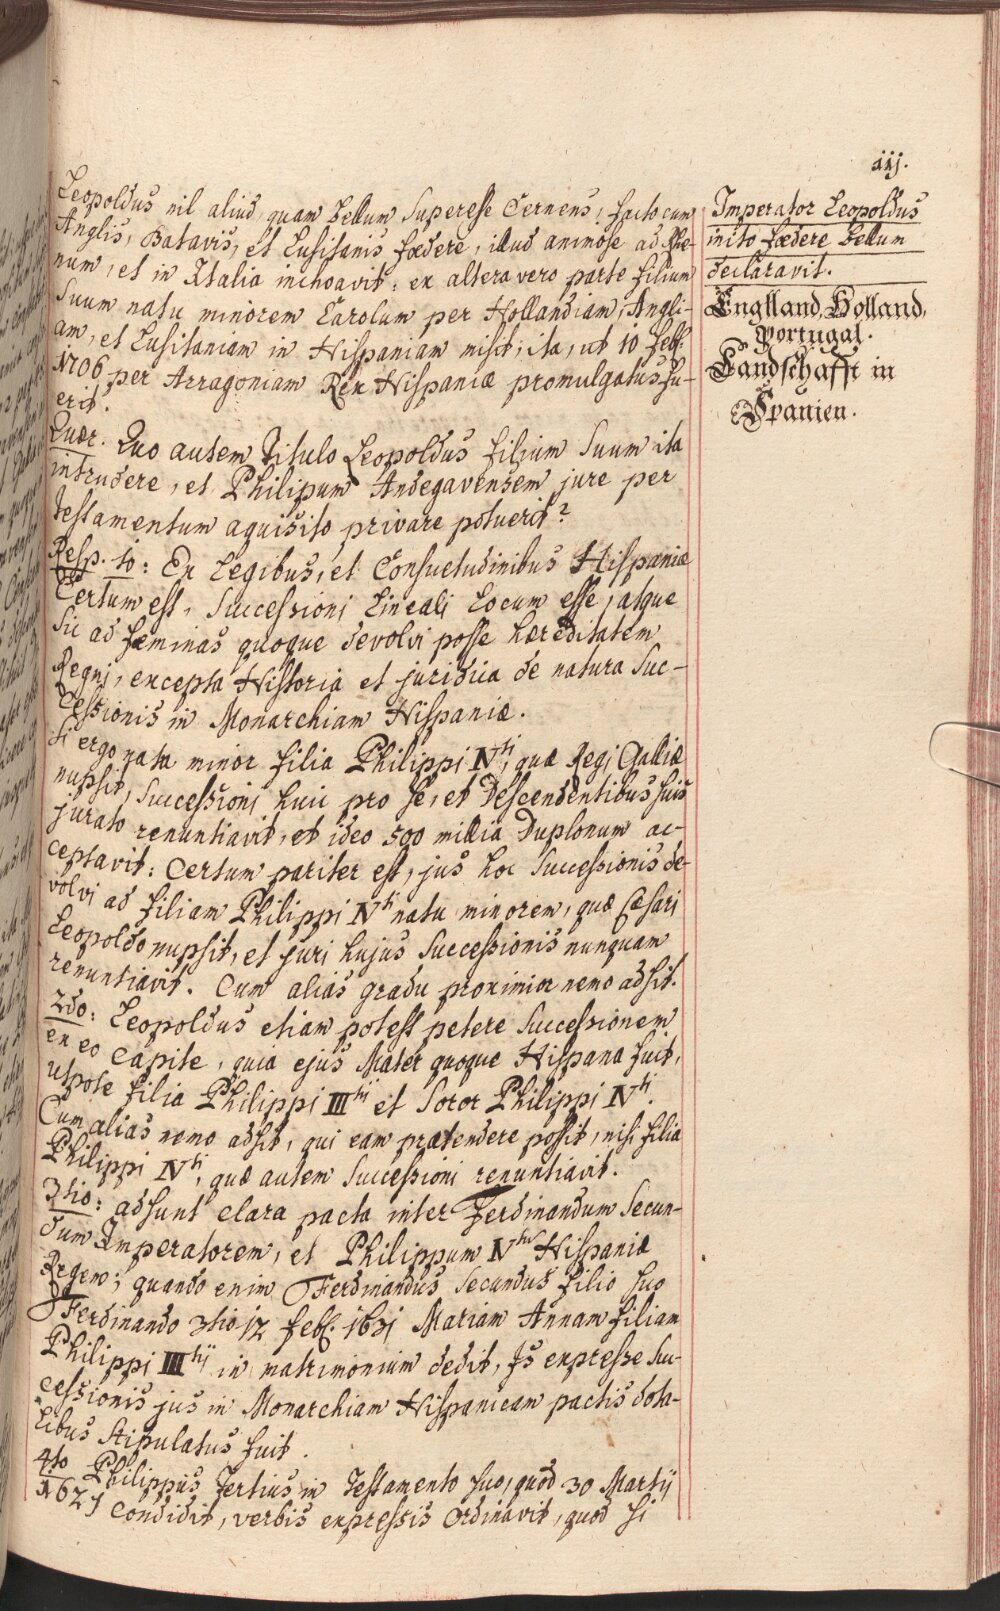 iij.
Leopoldus nil aliud, quam bellum superesse Cernens, facto cum
Anglis, Batavis, et Lusitanis fœdere, illud animose ad Rhe-
num, et in Italia inchoavit: ex altera vero parte filium
suum natu minorem Carolum per Hollandiam, Angli-
am, et Lusitaniam in Hispaniam misit; ita, ut 10 feb:
1706 per Arragoniam Rex Hispaniæ promulgatus fu-
erit.
Quær. Quo autem Titulo Leopoldus filium suum ita
intrudere, et Philipum Andegavensem jure per
testamentum aquisito privare potuerit?
Resp. 1o: Ex Legibus, et Consuetudinibus Hispaniæ
Certum est, Successioni Lineali Locum esse, atque
Sic ad fæminas quoque devolvi posse hæreditatem
Regni, excepta Historia et juridica de natura Suc-
cessionis in Monarchiam Hispaniæ.
Si ergo nata minor filia Philippi IVti, quæ Regi Galliæ
nupsit, successioni huic pro se, et Descendentibus suis
jurato renuntiavit, et ideo 500 millia Duplonum ac-
ceptavit: Certum pariter est, jus hoc Successionis de-
volvi ad filiam Philippi IVti natu minorem, quæ Cæsari
Leopoldo nupsit, et juri hujus successionis nunquam
renuntiavit. Cum alias gradu proximior nemo adsit.
2do: Leopoldus etiam potest petere Successionem
ex eo capite, quia ejus Mater quoque Hispana fuit,
utpote filia Philippi IIItii et Soror Philippi IVti.
Cum alias nemo adsit, qui eam prætendere possit, nisi filia
Philippi IVti, quæ autem Successioni renuntiavit.
3tio: adsunt clara pacta inter Ferdinandum Secun-
dum Imperatorem, et Philippum IVtum Hispaniæ
Regem; quando enim Ferdinandus Secundus filio suo
Ferdinando 3tio 12 feb: 1631 Mariam Annam filiam
Philippi IIItij in matrimonium dedit, Is expresse Suc-
cessionis jus in Monarchiam Hispanicam pactis dota-
libus stipulatus fuit.
4to Philippus Tertius in Testamento suo, quod 30 Martij
1621 condidit, verbis expressis ordinavit, quod si
Imperator Leopoldus
inito fœdere bellum
declaravit.
Englland, Holland,
Portugal.
Landschafft in
Spanien.